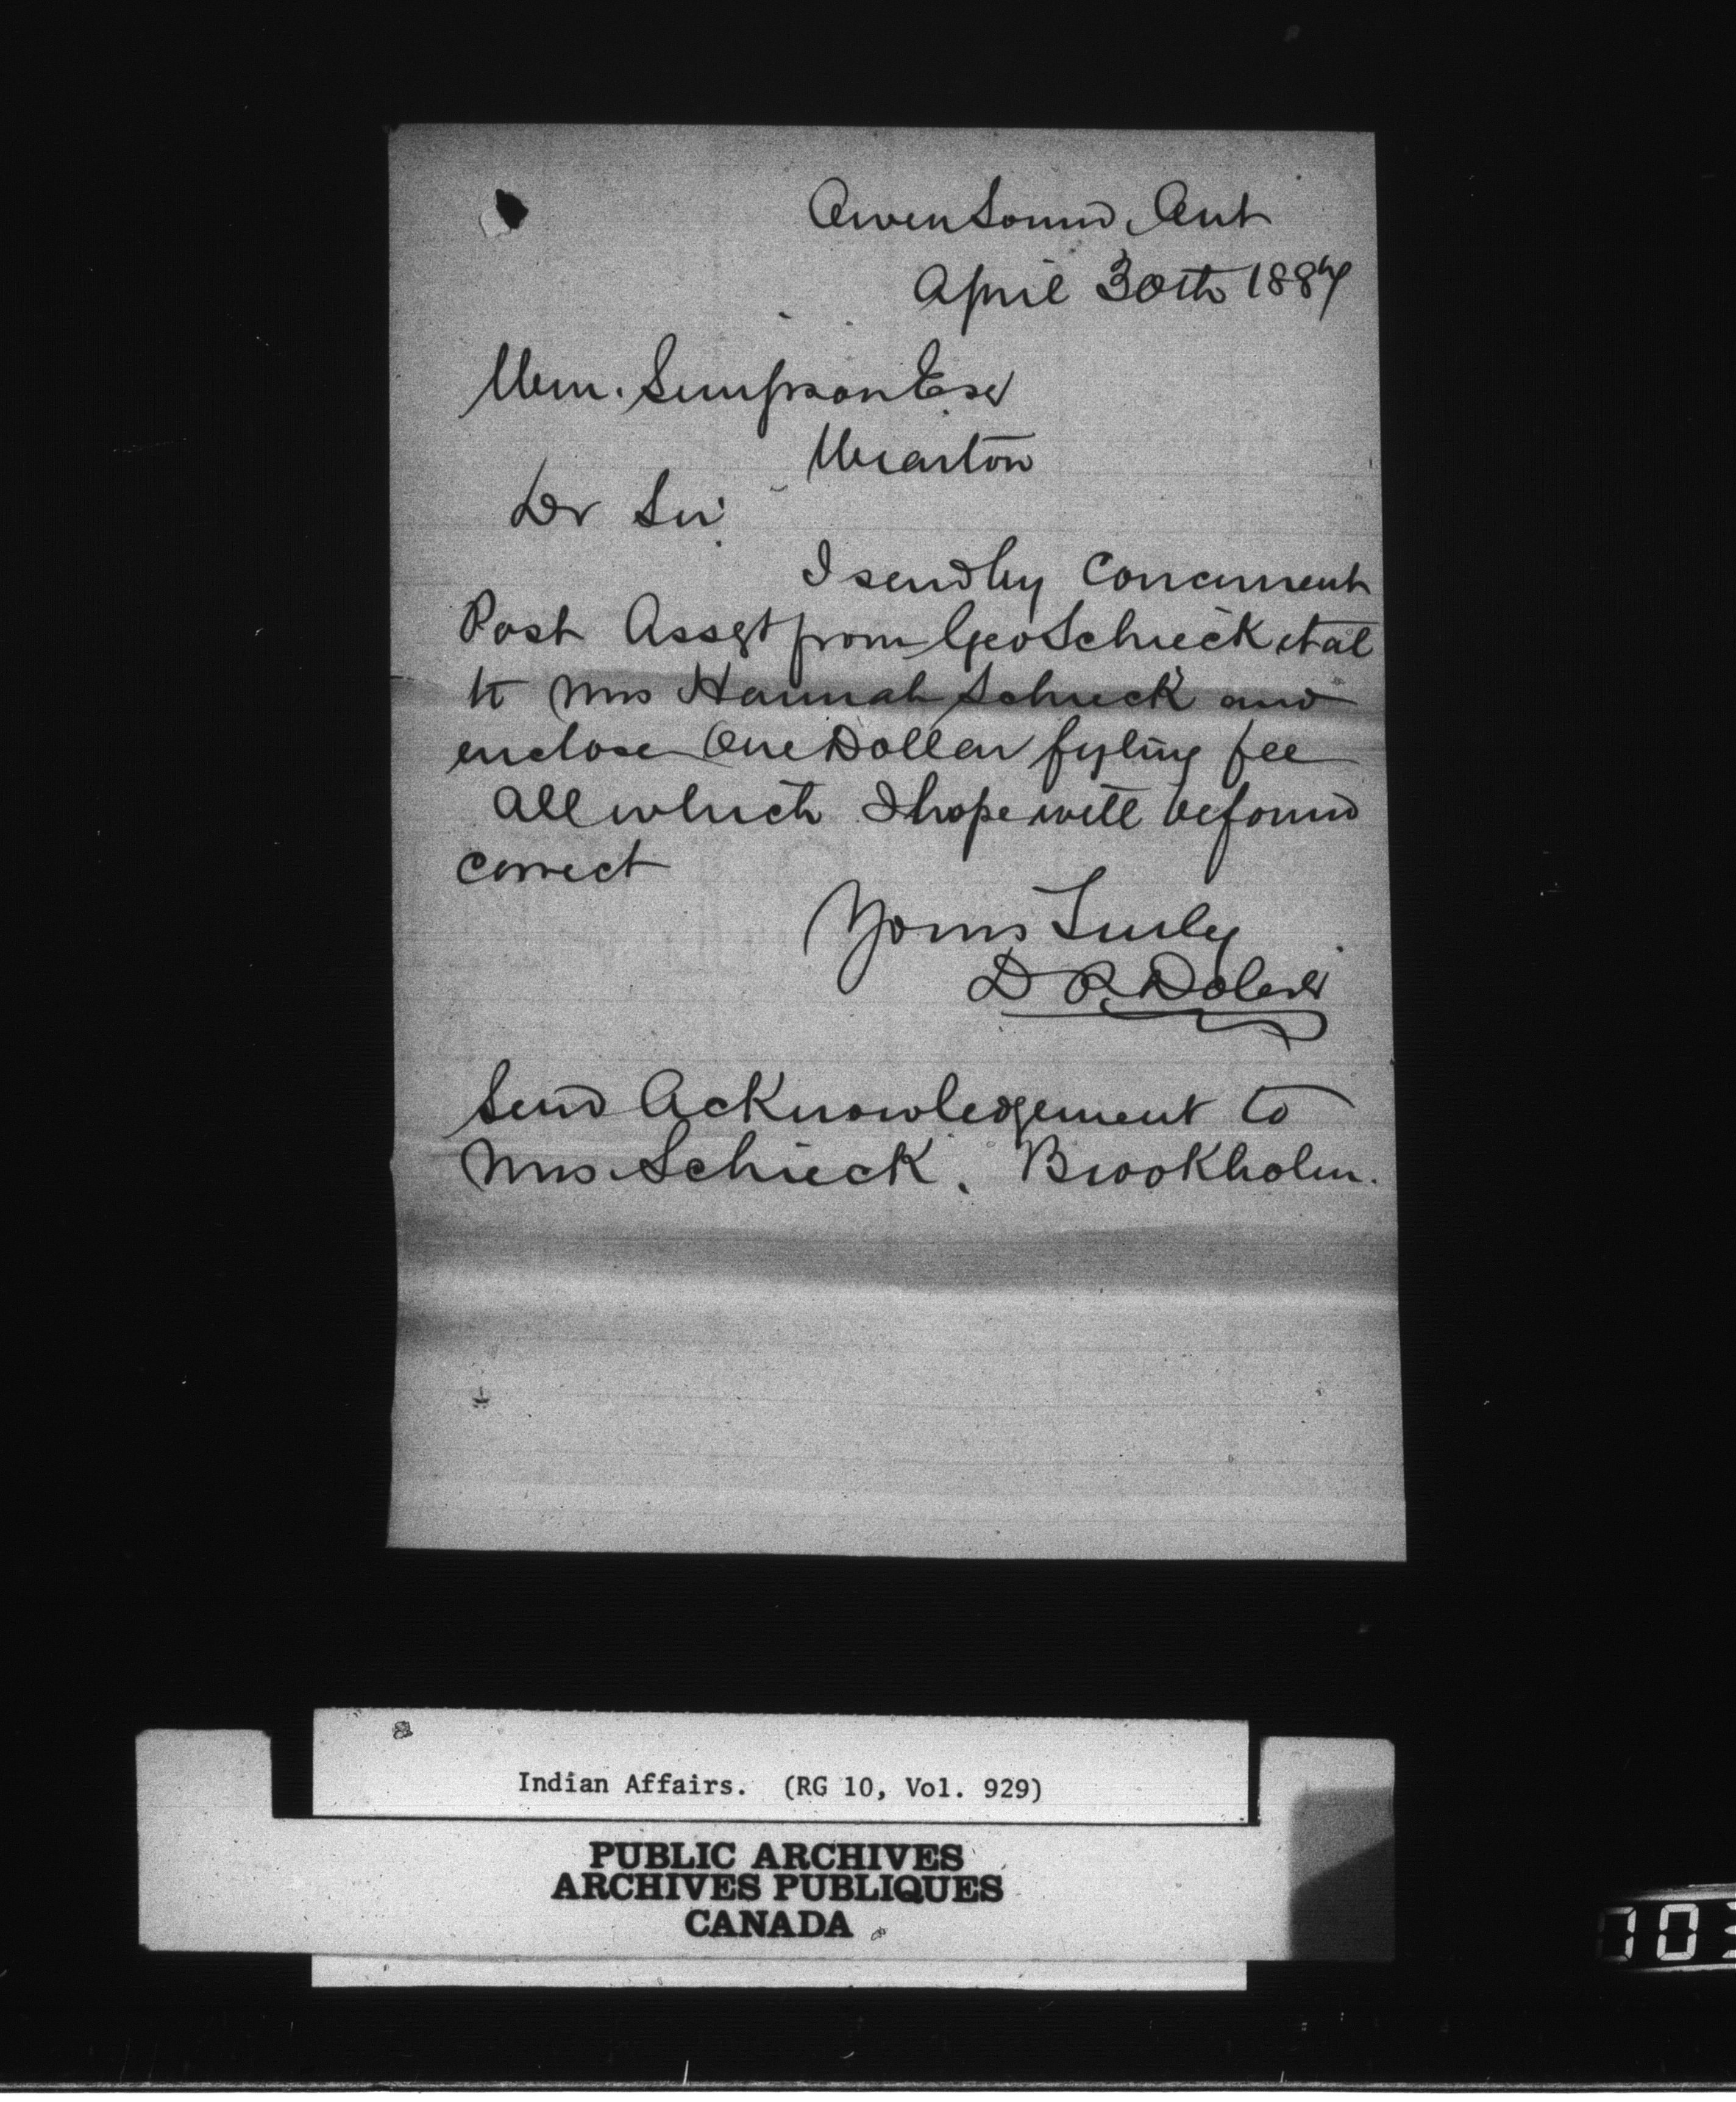 Owen Sound, Ont
April 30th 1887
Wm. Simpson Esq
Wiarton
Dr Sir
I send by Concurrent
Post Assgt from Geo Schieck et al
to Mrs Hannah Schieck and
enclose One Dollar fyling fee
All which I hope will be found
correct
Yours Truly
D R Dobie
Send Acknowledgement to
Mrs Schieck. Brookholm.
Indian Affairs. (RG 10, Vol. 929)
PUBLIC ARCHIVES
ARCHIVES PUBLIQUES
CANADA